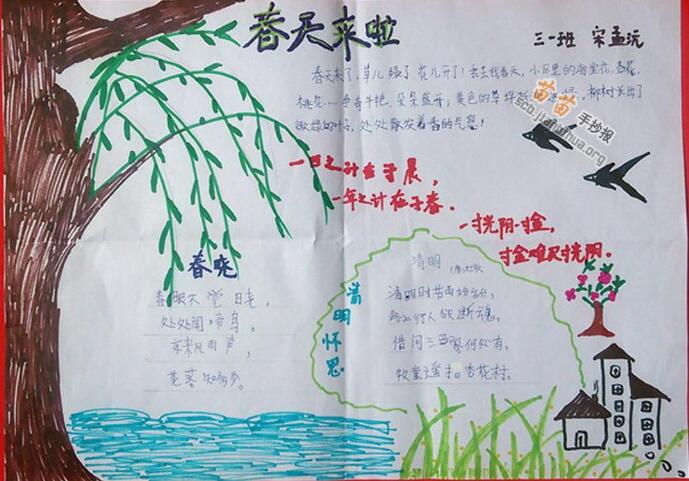 春天来啦
三一班 宋孟沅
春天来了,草儿绿了花儿开了!我去找春天,小区里的海棠花,杏花,
桃花……争奇斗艳、朵朵盛开,黄色的草坪 柳树长出了
嫩绿的叶子,处处散发着春的气息!
苗苗手抄报
scb.jiafuhua.org
一日之计在于晨,
一年之计在于春.
一寸光阴一寸金,
寸金难买寸光阴.
春晓
春眠不觉晓,
处处闻啼鸟。
夜来风雨声,
花落知多少。
清明怀思
清明
清明时节雨纷纷,
路上行人欲断魂。
借问酒家何处有,
牧童遥指杏花村。